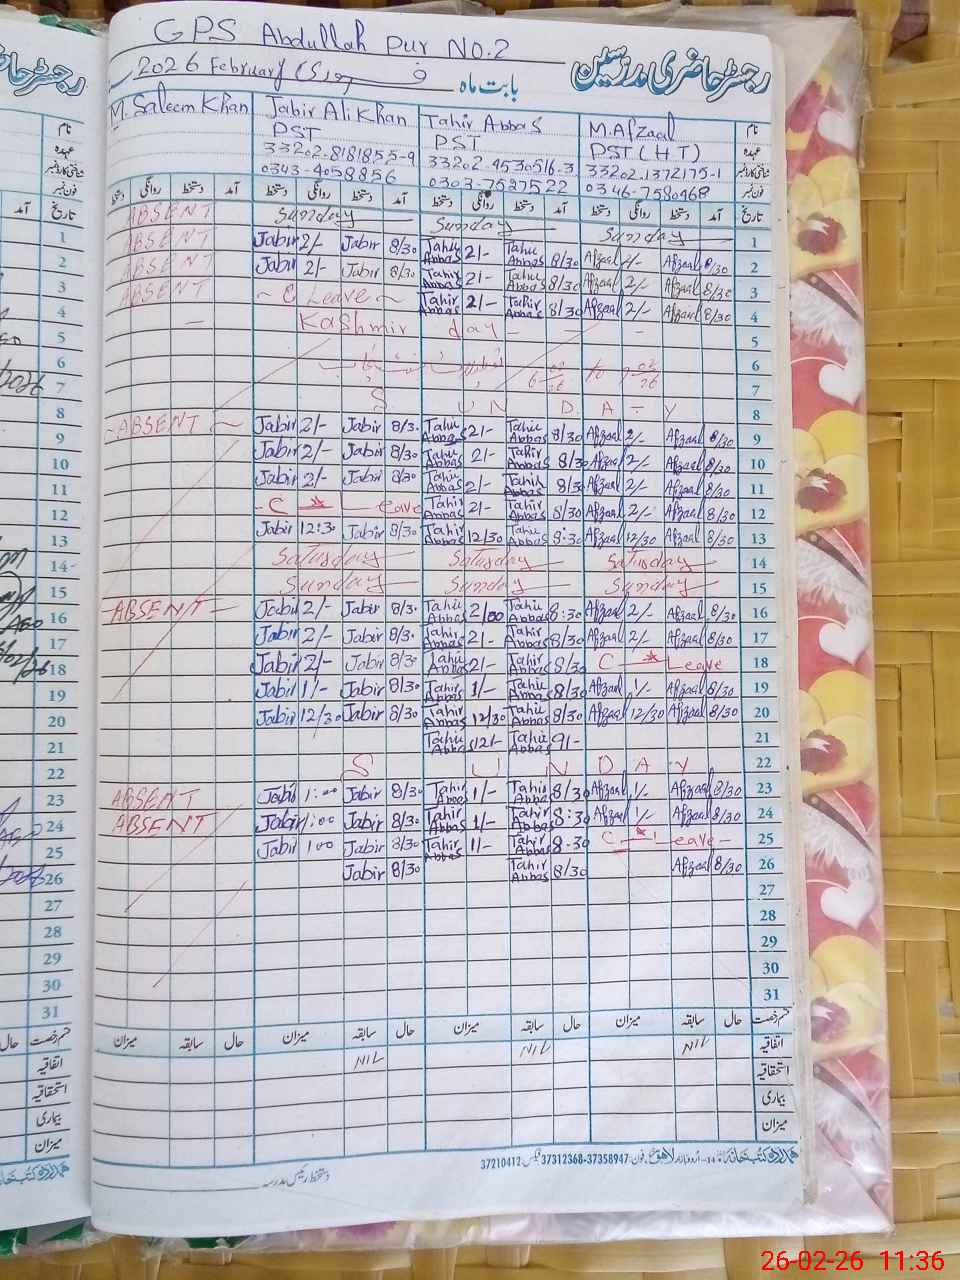 GPS Abdullah Pur NO.2
رجسٹر حاضری مدرسین
بابت ماہ فروری 2026 February
M. Saleem Khan Jabir Ali Khan Tahir Abbas M. Afzaal نام
PST PST PST (HT) عہدہ
33202-8181855-9 33202-4530516-3 33202-1372175-1 شناختی کارڈ نمبر
0343-4058856 0303-7527522 0346-7580468 فون نمبر
دستخط روانگی دستخط آمد دستخط روانگی دستخط آمد دستخط روانگی دستخط آمد دستخط روانگی دستخط آمد تاریخ
ABSENT Sunday Sunday Sunday 1
ABSENT Jabir 2/- Jabir 8/30 Tahir Abbas 2/- Tahir Abbas 8/30 Afzaal Afzaal 8/30 2
ABSENT Jabir 2/- Jabir 8/30 Tahir Abbas 2/- Tahir Abbas 8/30 Afzaal 2/- Afzaal 8/30 3
ABSENT C Leave Tahir Abbas 2/- Tahir Abbas 8/30 Afzaal 2/- Afzaal 8/30 4
Kashmir day 5
6
7
S U N D A Y 8
ABSENT Jabir 2/- Jabir 8/30 Tahir Abbas 2/- Tahir Abbas 8/30 Afzaal 2/- Afzaal 8/30 9
Jabir 2/- Jabir 8/30 Tahir Abbas 2/- Tahir Abbas 8/30 Afzaal 2/- Afzaal 8/30 10
Jabir 2/- Jabir 8/30 Tahir Abbas 2/- Tahir Abbas 8/30 Afzaal 2/- Afzaal 8/30 11
C Leave Tahir Abbas 2/- Tahir Abbas 8/30 Afzaal 2/- Afzaal 8/30 12
Jabir 12:30 Jabir 8/30 Tahir Abbas 12/30 Tahir Abbas 8:30 Afzaal 12/30 Afzaal 8/30 13
Satusday Satusday Satusday 14
Sunday Sunday Sunday 15
ABSENT Jabir 2/- Jabir 8/30 Tahir Abbas 2/00 Tahir Abbas 8:30 Afzaal 2/- Afzaal 8/30 16
Jabir 2/- Jabir 8/30 Tahir Abbas 2/- Tahir Abbas 8/30 Afzaal 2/- Afzaal 8/30 17
Jabir 2/- Jabir 8/30 Tahir Abbas 2/- Tahir Abbas 8/30 C Leave 18
Jabir 1/- Jabir 8/30 Tahir Abbas 1/- Tahir Abbas 8/30 Afzaal 1/- Afzaal 8/30 19
Jabir 12/30 Jabir 8/30 Tahir Abbas 12/30 Tahir Abbas 8/30 Afzaal 12/30 Afzaal 8/30 20
Tahir Abbas 12/- Tahir Abbas 9/- 21
S U N D A Y 22
ABSENT Jabir 1:00 Jabir 8/30 Tahir Abbas 1/- Tahir Abbas 8/30 Afzaal 1/- Afzaal 8/30 23
ABSENT Jabir 1:00 Jabir 8/30 Tahir Abbas 1/- Tahir Abbas 8:30 Afzaal 1/- Afzaal 8/30 24
Jabir 100 Jabir 8/30 Tahir Abbas 1/- Tahir Abbas 8-30 C Leave 25
Jabir 8/30 Tahir Abbas 8/30 Afzaal 8/30 26
27
28
29
30
31
میزان سابقہ حال میزان سابقہ حال میزان سابقہ حال میزان سابقہ حال قسم رخصت
NIL NIL NIL اتفاقیہ
استحقاقیہ
بیماری
میزان
ہمدرد کتب خانہ 14-اردو بازار لاہور فون: 37358947-37312368 فیکس: 37210412
دستخط رئیس مدرسہ
26-02-26 11:36